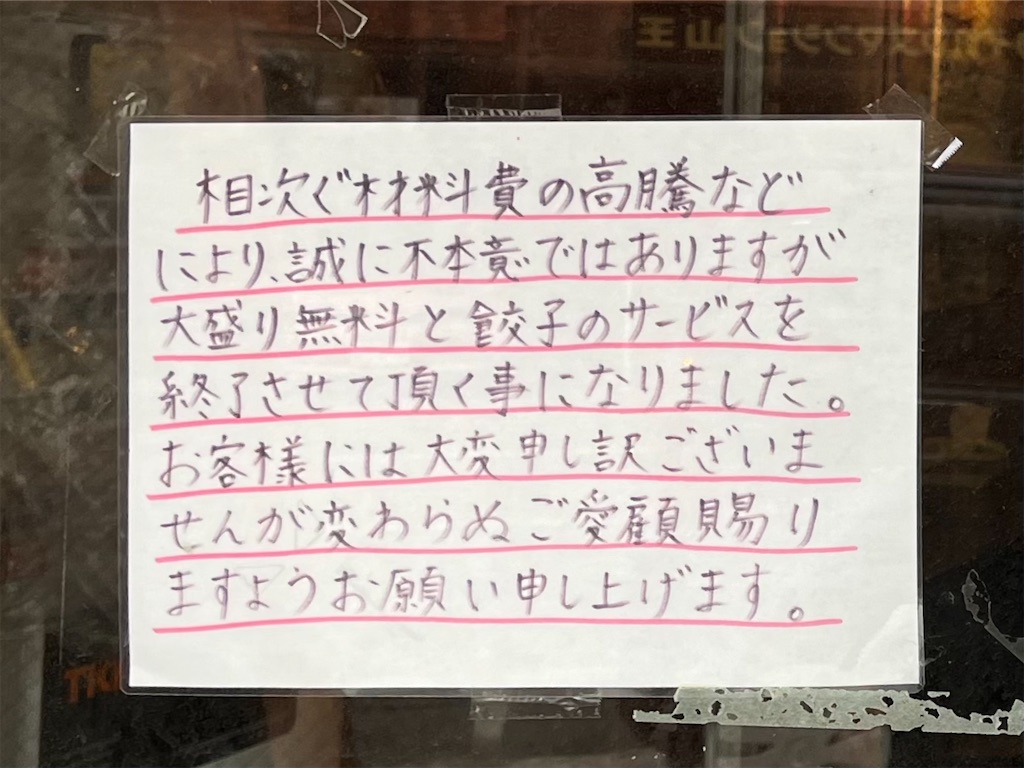 相次ぐ材料費の高騰など
により、誠に不本意ではありますが
大盛り無料と餃子のサービスを
終了させて頂く事になりました。
お客様には大変申し訳ございま
せんが変わらぬご愛顧賜り
ますようお願い申し上げます。